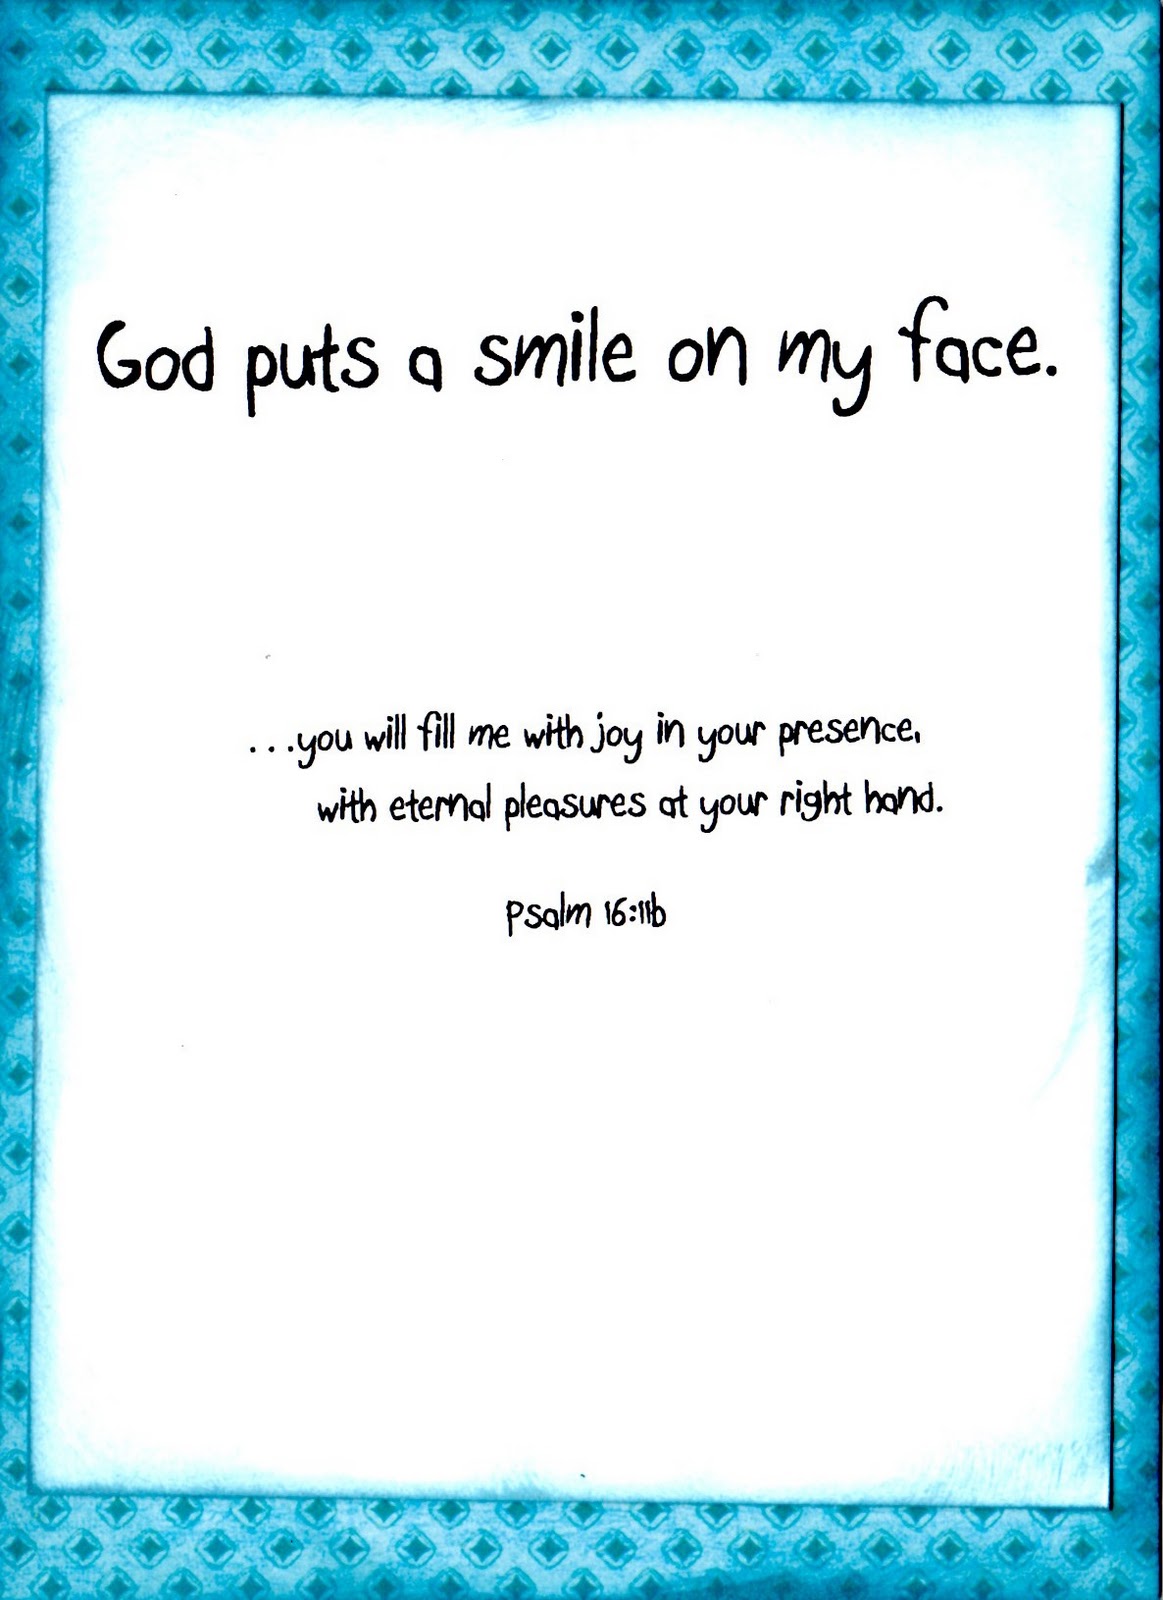 God puts a smile on my face.
...you will fill me with joy in your presence,
with eternal pleasures at your right hand.
Psalm 16:11b